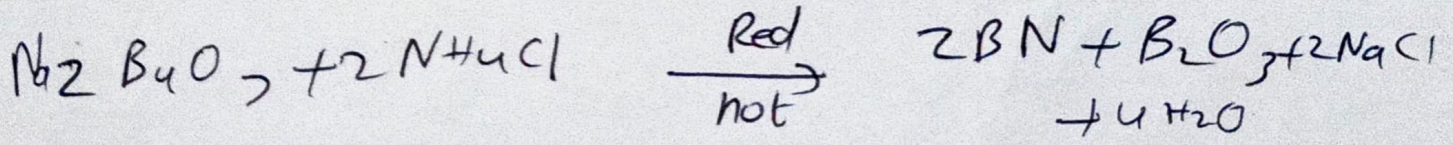 Na2 B4O7 + 2 NH4Cl Red hot → 2BN + B2O3 + 2NaCl
+ 4 H2O